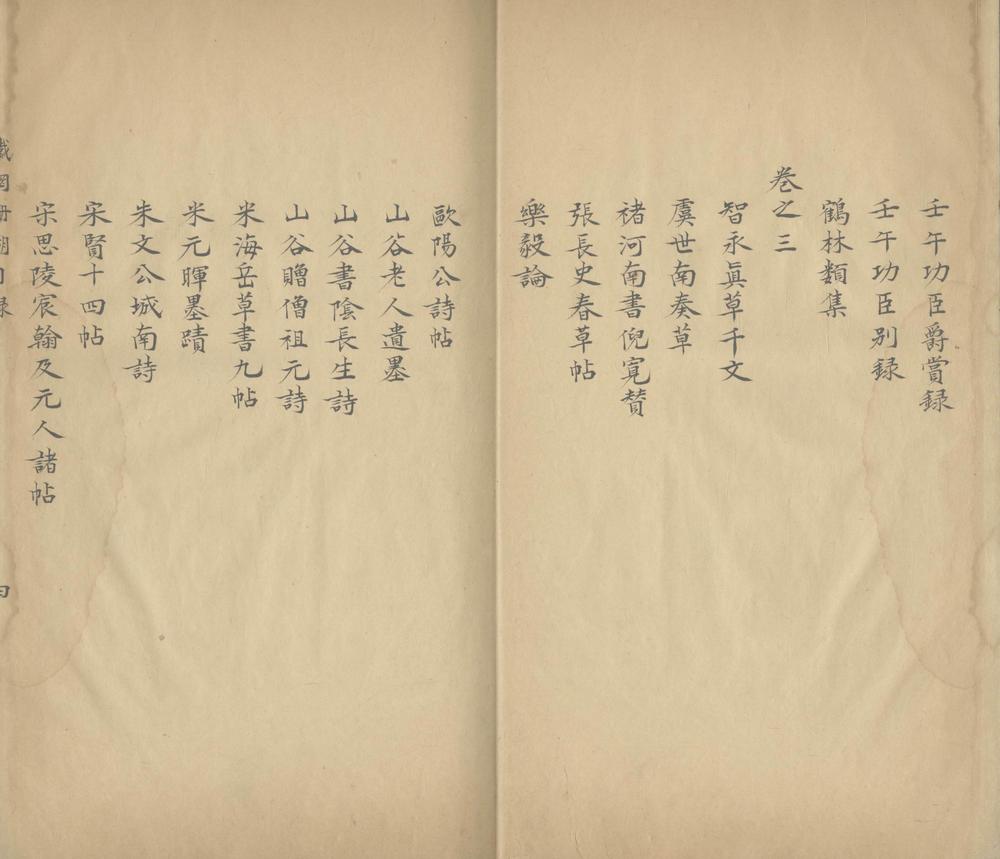 壬午功臣爵賞録
壬午功臣别録
鶴林類集
卷之三
智永真草千文
虞世南奏草
禇河南書倪寛賛
張長史春草帖
樂毅論
歐陽公詩帖
山谷老人遺墨
山谷書陰長生詩
山谷贈僧祖元詩
米海岳草書九帖
米元暉墨蹟
朱文公城南詩
宋賢十四帖
宋思陵宸翰及元人諸帖